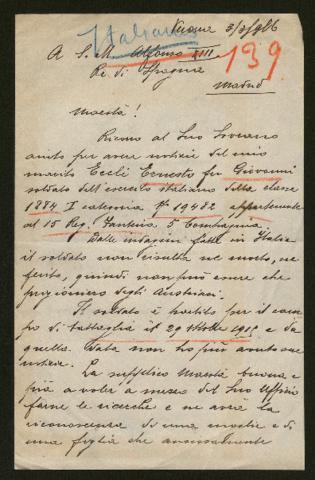 Italiano
Verona 3/3/916
A S. M. Alfonso XIII
139
Re di Spagna
Madrid
Maestà!
Ricorro al Suo Sovrano
aiuto per avere notizie del mio
marito Ecli Ernesto fu Giovanni
soldato dell'esercito italiano della classe
1884 I categoria N° 19482 appartenente
al 15 Reg. Fanteria 5 Compagnia.
Dalle indagini fatte in Italia
il soldato non risulta ne morto, ne
ferito, quindi non può essere che
prigioniero degli Austriaci.
Il soldato è partito per il cam
po di battaglia il 29 Ottobre 1915 e da
quella data non ho più avuto sue
notizie.
La supplico Maestà buona e
pia a voler a mezzo del Suo Ufficio
farne le ricerche e ne avrà la
riconoscenza di una moglie e di
una figlia che ansiosamente